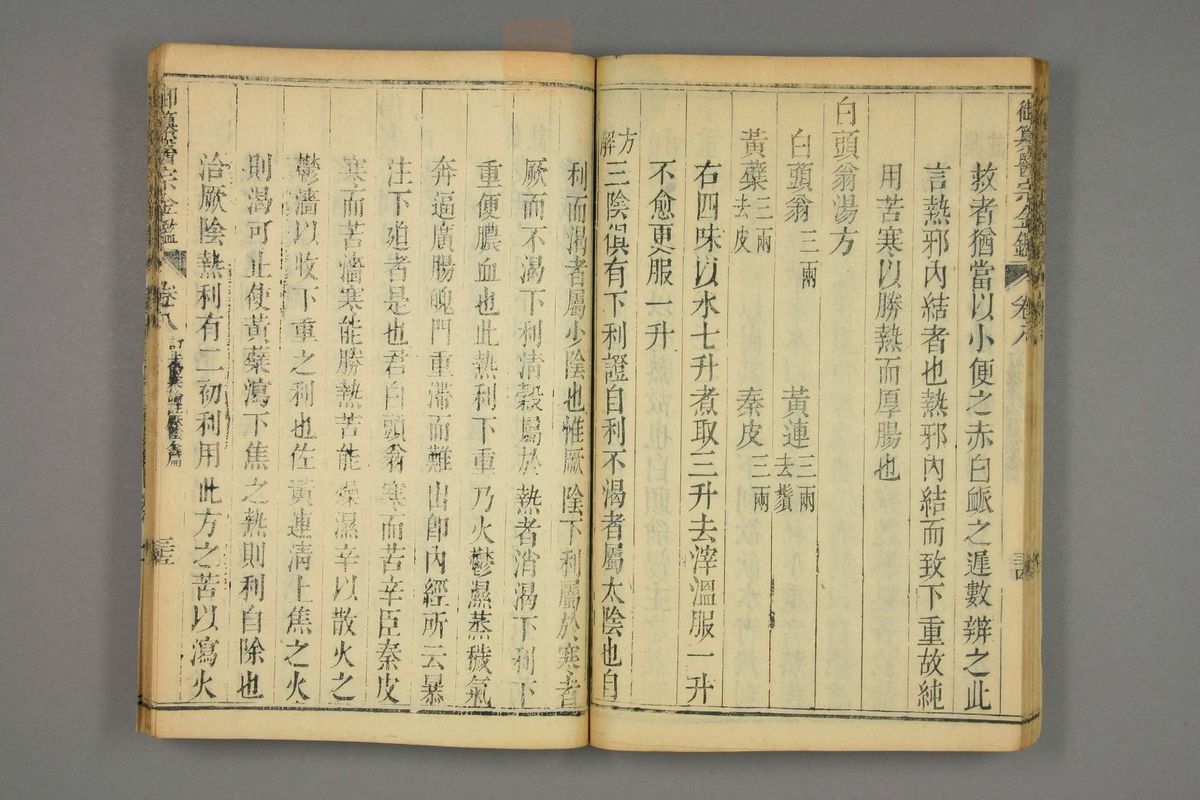 御纂醫宗金鑑 卷八 三四
救者猶當以小便之赤白䘑之遲數辨之此
言熱邪內結者也熱邪內結而致下重故純
用苦寒以勝熱而厚腸也
白頭翁湯方
白頭翁三兩 黃連三兩去鬚
黃蘗三兩去皮 秦皮三兩
右四味以水七升煮取三升去滓溫服一升
不愈更服一升
方解三陰俱有下利證自利不渴者屬太陰也自
利而渴者屬少陰也惟厥陰下利屬於寒者
厥而不渴下利清穀屬於熱者消渴下利下
重便膿血也此熱利下重乃火鬱濕蒸穢氣
奔逼廣腸魄門重滯而難出卽內經所云暴
注下廹者是也君白頭翁寒而苦辛臣秦皮
寒而苦濇寒能勝熱苦能燥濕辛以散火之
鬱濇以收下重之利也佐黃連清上焦之火
則渴可止使黃蘗瀉下焦之熱則利自除也
治厥陰熱利有二初利用此方之苦以瀉火
御纂醫宗金鑑 卷八 訂 三五